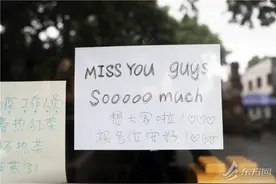 MISS YOU guys
Sooooo much
想大家啦!♡♡♡
祝各位安好!♡♡♡
工作人员
热红茶
东方网